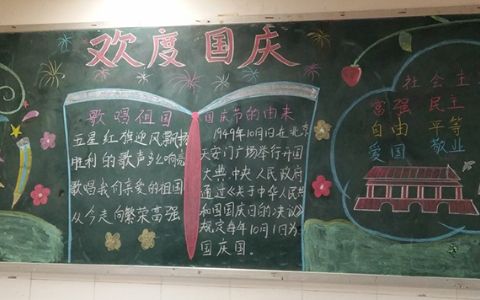 欢度国庆
歌唱祖国
五星红旗迎风飘扬
胜利的歌声多么响亮
歌唱我们亲爱的祖国
从今走向繁荣高强
国庆节的由来
1949年10月1日在北京
天安门广场举行开国
大典,中央人民政府
通过《关于中华人民共
和国国庆日的决议》
规定每年10月1日为
国庆国。
社会主
富强 民主
自由 平等
爱国 敬业